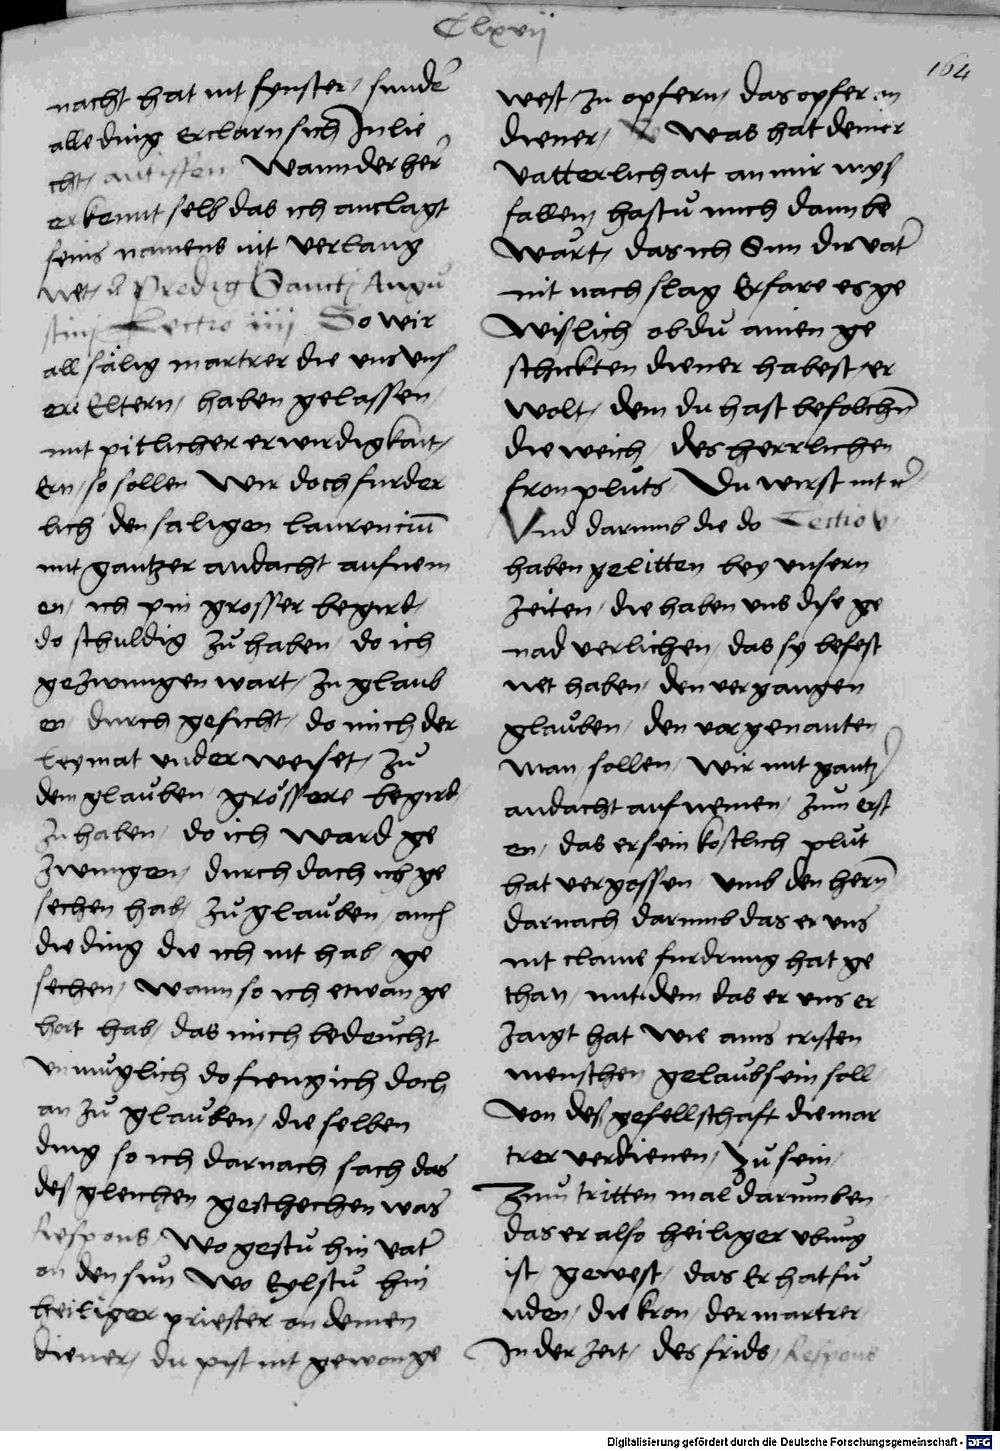 Clxvij
164
nacht hat nit fynster / sunder
alle ding erclarn sich Jn lie
cht / antiffen Wann der her
erkennt selb das ich anclagt
seins namens nit verlaug
net / ein predig Sanctj Augu
stinj Lectio iiij So wir
all sälig martrer die uns uns
ere Eltern / haben gelassen /
mit pitlicher erwirdigkait /
Ern / so sollen wir doch furder
lich den saligen laurenciu
mit gantzer andacht aufnem
en / ich pin grosser begird /
do schuldig zu haben / do ich
gezwungen wart / zu glaub
en / durch gesicht / do mich der
leymat under weiset / zu
dem glauben / grössere begird
zu haben / do ich ward ge
zwungen / durch dach ich ge
sechen hab / zu glauben / auch
die ding die ich nit hab ge
sechen / wann so ich etwan ge
hort hab / das mich bedeucht
unmuglich do fieng ich doch
an zu glauben / die selben
ding so ich darnach sach das
des gleichen geschechen was
Respons Wo gestu hin vater
on den sun wo Eylstu hin
heiliger priester on deinen
diener / du pist nit gewon ge
west / zu opfern / das opfer on
diener / V Was hat deiner
vatterlichait an mir mys
fallen hastu mich dann be
wart / das ich Sun dir vater
nit nach slag Erfare es ge
wislich ob du ainen ge
schickten diener habest er
wolt / dem du hast befolchen
die weich / des herrlichen
fronpluts / Du wirst nit
Vnd darumb die do Lectio v
haben gelitten bey unsern
zeiten / die haben uns dise ge
nad verlichen / das sy befest
net haben / den vergangen
glauben / den vorgenanten
man sollen / wir mit gantzer
andacht aufnemen / zum erst
en / das er sein kostlich plut
hat vergossen / umb den hern
darnach darumb das er uns
nit claine furdrung hat ge
than / mit dem das er uns er
zaigt hat wie ains cristen
menschen gelaub sein soll
von des gesellschaft die mar
trer verdienen / zu sein /
zum tritten mal darumben
das er also heiliger ubung
ist / gewest / das Er hat fu
nden / die kron / der martrer /
Jn der zeit / des frids / Respons
Digitalisierung gefördert durch die Deutsche Forschungsgemeinschaft - DFG